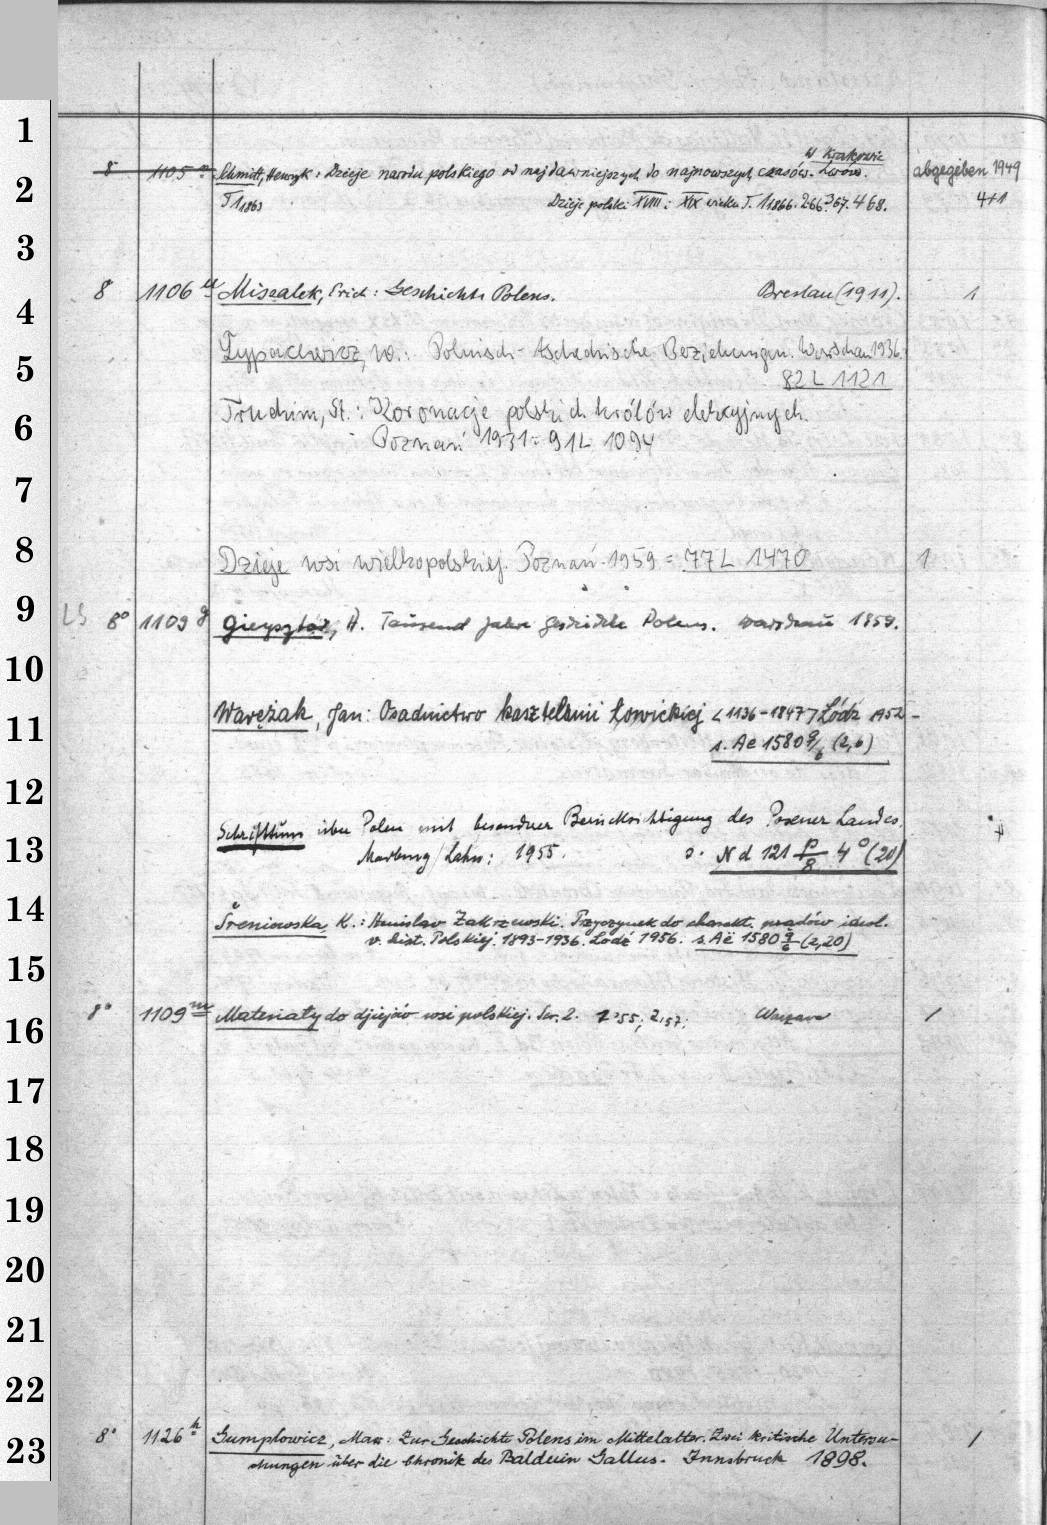 1
2
3
4
5
6
7
8
9
10
11
12
13
14
15
16
17
18
19
20
21
22
23
W Krakowie
8 1105 Schmitt, Henryk: Dzieje narodu polskiego od najdawniejszych do najnowszych czasów. Lwów. abgegeben 1949
T 1 1863 Dzieje polski XVIII i XIX wieku T. 1 1866. 2 66. 3 67. 4 68. 4+1
8 1106 Miszalek, Erich: Geschichte Polens. Breslau (1911). 1
W.: Polnisch-tschechische Beziehungen. Warschau 1936.
82 L 1121
Truchim, St.: Koronacje polskich królów elekcyjnych.
Poznań 1931 = 91 L 1094
Dzieje wsi wielkopolskiej. Poznań 1959 = 77 L 1470 1
LS 8° 1109 g Gieysztor, A. Tausend Jahre Geschichte Polens. Warschau 1959.
Warężak, Jan: Osadnictwo kasztelanii Łowickiej <1136-1847> Łódź 1952
s. Ae 1580 9/6 (2,6)
Schrifttum über Polen mit besonderer Berücksichtigung des Posener Landes.
Marburg/Lahn: 1955. s. Nd 121 p/8 4° (20)
Śreniowska, K.: Stanislaw Zakrzewski. Przyczynek do charakt. prądów ideol.
w hist. Polskiej. 1893-1936. Łódź 1956. s. Ae 1580 9/6 (2,20)
8° 1109 m Materiały do dziejów wsi polskiej. Ser. 2. 1 '55; 2, 57; Warszawa 1
8° 1126 h Gumplowicz, Max: Zur Geschichte Polens im Mittelalter. Zwei kritische Untersu- 1
chungen über die Chronik des Balduin Gallus. Innsbruck 1898.